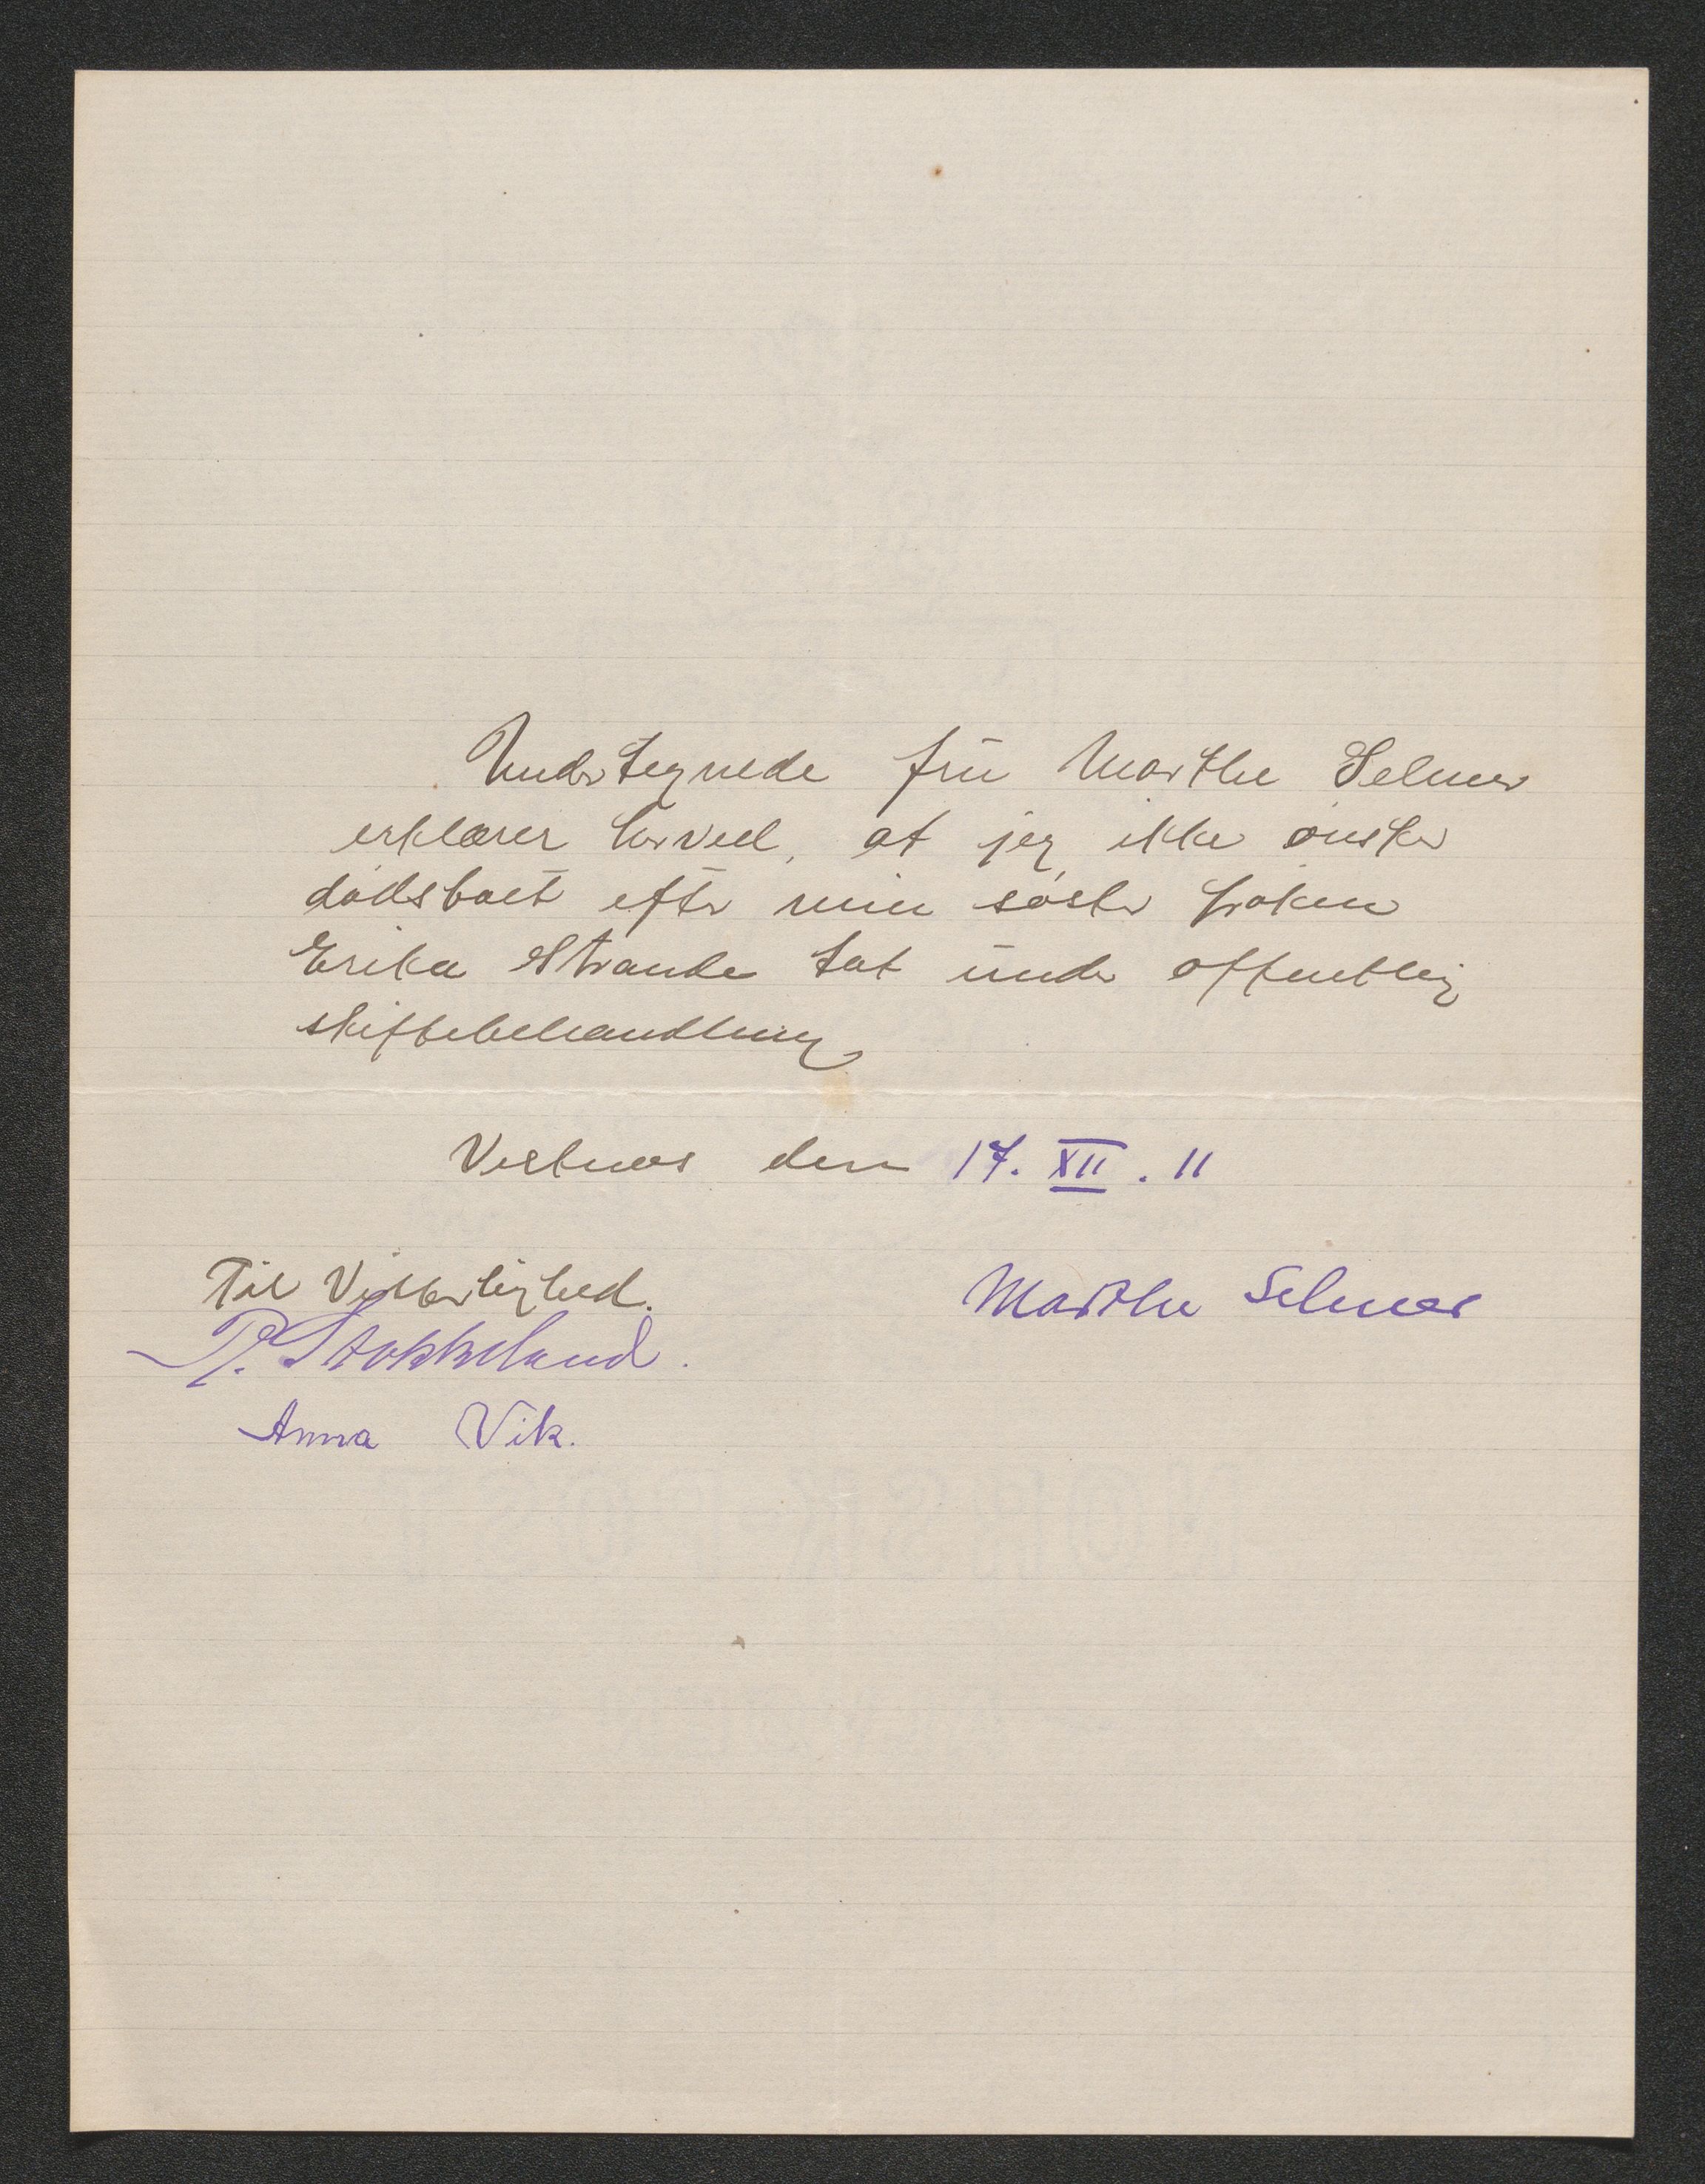 Undertegnede frü Marthe Selmer
erklærer herved, at jeg ikke ønsker
dødsboet efter min søster frøken
Erika Strande tat ünder offentlig
skiftebehandling
Vestnes den 17. XII. 11
Til Vitterlighed. Marthe Selmer
P. Stokkeland.
Anna Vik.